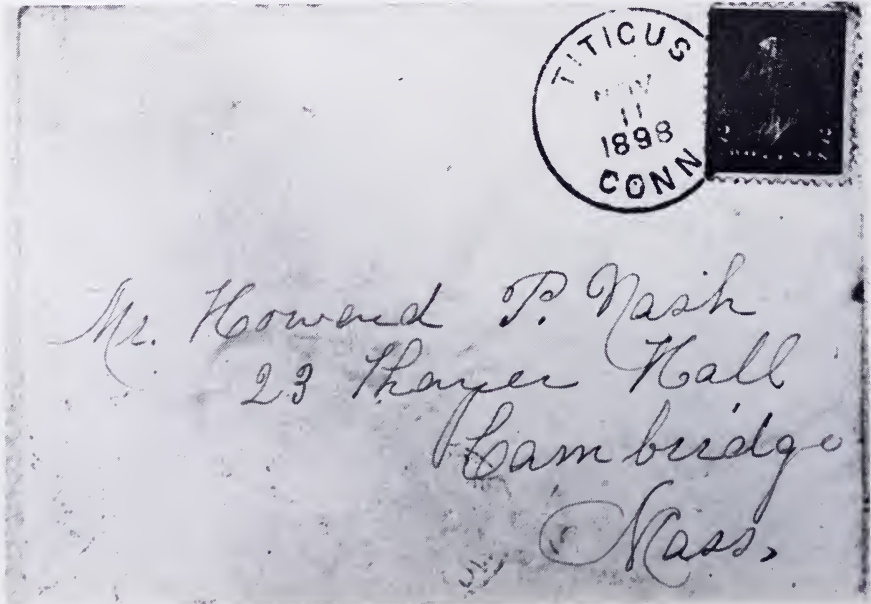 TITICUS
NOV
11
1898
CONN
Mr. Howard P. Nash
23 Thayer Hall
Cambridge
Mass.